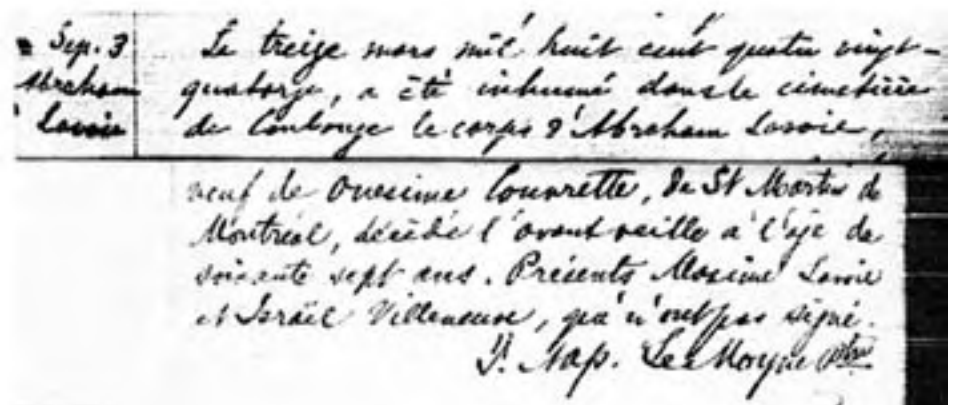 Sep. 3
Abraham
Lavoie
Le treize mars mil huit cent quatre vingt-
quatorze, a été inhumé dans le cimetière
de Coulonge le corps d'Abraham Lavoie,
veuf de Onesime Couvrette, de St Martin de
Montréal, décédé l'avant veille a l'age de
soixante sept ans. Présents Maxime Lavoie
et Israël Villeneuve, qui n'ont pas signé.
Nap. LeMoyne ptre